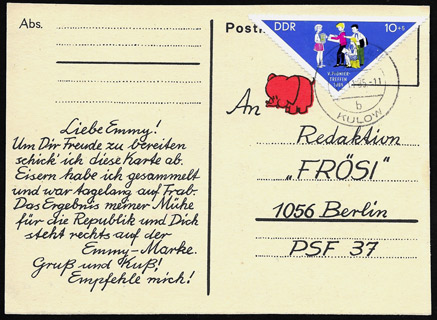 Abs.
Liebe Emmy!
Um Dir Freude zu bereiten
schick' ich diese Karte ab.
Eisern habe ich gesammelt
und war tagelang auf Trab.
Das Ergebnis meiner Mühe
für die Republik und Dich
steht rechts auf der
Emmy-Marke.
Gruß und Kuß!
Empfehle mich!
DDR
10+5
V. PIONIER-
TREFFEN
KULOW
b
An
Redaktion
„FRÖSI"
1056 Berlin
PSF 37